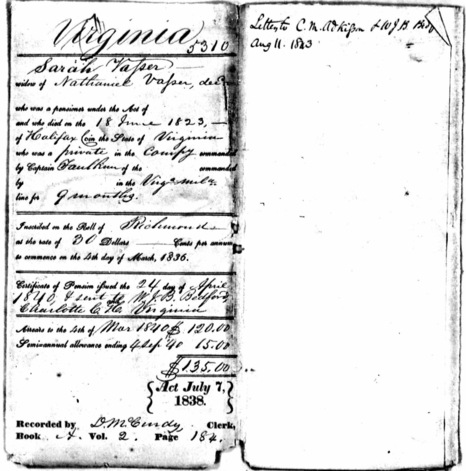 Virginia
5310
Sarah Vasser
widow of Nathaniel Vasser, dec
who was a pensioner under the Act of
and who died on the 18 June 1823,
of Halifax Co in the State of Virginia
who was a private in the Compy commanded
by Captain Faulkner of the commanded
by in the Virga mila
tine for 9 months.
Inscribed on the Roll of Richmond
at the rate of 30 Dollars Cents per annum
to commence on the 4th day of March, 1836.
Certificate of Pension issued the 24 day of April
1840, & sent to W. J. B. Bedford
Charlotte C. H. Virginia
Arrears to the 4th of Mar 1840 $ 120.00
Semi-annual allowance ending 4 Sep '40 15.00
$135.00
Act July 7,
1838.
Recorded by D. McCurdy Clerk,
Book A Vol. 2 Page 184.
Letters to C. M. Adkisson & W J B
Aug 11. 1843